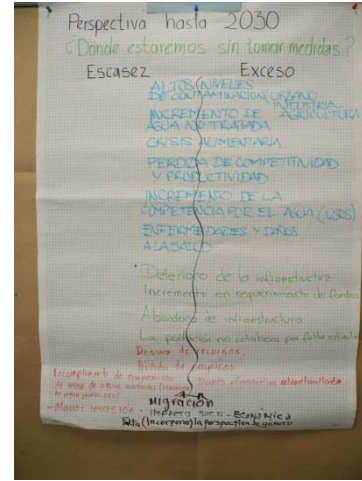 Perspectiva hasta 2030
¿Donde estaremos sin tomar medidas?
Escasez Exceso
ALTOS NIVELES
DE CONTAMINACION, URBANO
INDUSTRIA,
AGRICULTURA
INCREMENTO DE
AGUA NO TRATADA
CRISIS ALIMENTARIA
PERDIDA DE COMPETITIVIDAD
Y PRODUCTIVIDAD
INCREMENTO DE LA
COMPETENCIA POR EL AGUA (USOS)
ENFERMEDADES Y DAÑOS
A LA SALUD
Deterioro de la infraestructura
Incremento en requerimiento de fondos
Abandono de infraestructura
La poblacion no colabora por falta
Desvio de recursos.
Perdida de empleos
Incumplimiento de compromisos
de aguas
Daños alcantarillado
Mayor inversión
MIGRACIÓN
IMPACTO SOCIO-ECONÓMICO
Falta (Incorporar) la perspectiva de género